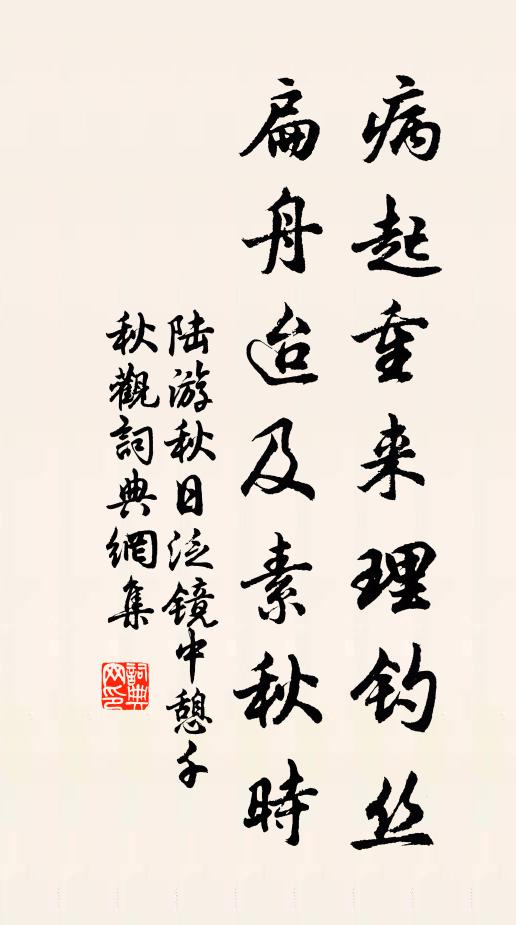 病起重来理钓丝
扁舟迨及素秋時
陆游秋日泛镜中憩千
秋觀詞典網集
詞典
网印